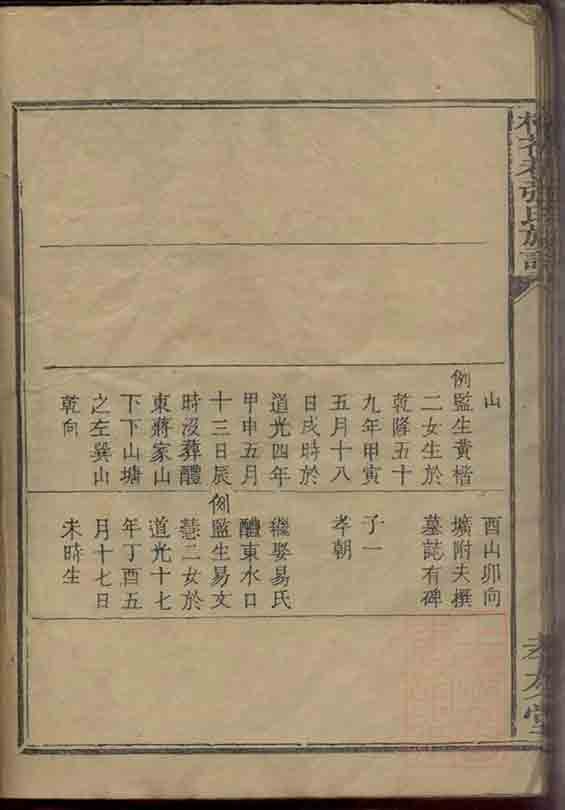 張氏族譜
山
例監生黃楷
二女生於
乾隆五十
九年甲寅
五月十八
日戌時於
道光四年
甲申五月
十三日辰
時沒葬醴
東蔣家山
下下山塘
之左巽山
乾向
酉山卯向
壙附夫撰
墓誌有碑
子一
孝朝
繼娶易氏
醴東水口
例監生易文
慧二女於
道光十七
年丁酉五
月十七日
未時生
孝友堂